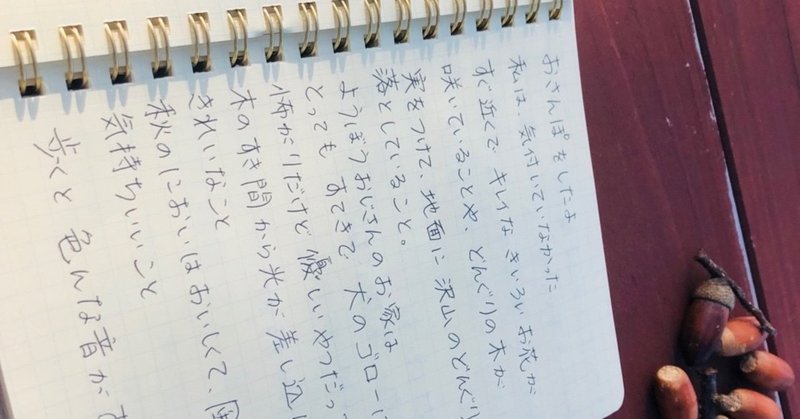 おさんぽをしたよ
私は、気付いていなかった
すぐ近くで キレイな きいろい お花が
咲いていることや、どんぐりの木が
実をつけて、地面に 沢山のどんぐり
落としていること。
ようぼうおじさんのお家は
とっても すてきで 犬のゴローは
怖がりだけど 優しいやつだっ
木のすき間から光が差し込
きれいなこと
秋のにおいはおいしくて、
気持ちいいこと
歩くと 色んな音が